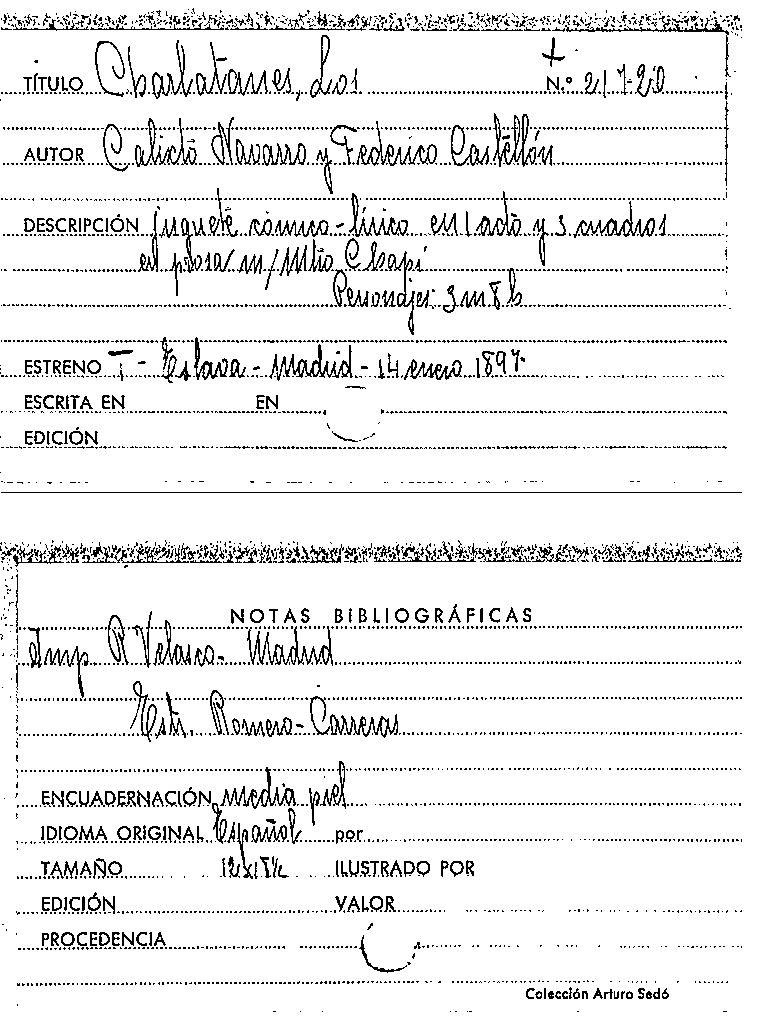 TÍTULO Charlatanes, Los N.º 217-20
AUTOR Calixto Navarro y Federico Castellón
DESCRIPCIÓN juguete cómico-lírico en 1 acto y 3 cuadros
en prosa m/ Mtro Chapí
Personajes: 3 m 8 h
ESTRENO T - Eslava - Madrid - 14 enero 1897.
ESCRITA EN EN
EDICIÓN
NOTAS BIBLIOGRÁFICAS
Imp. R Velasco - Madrid
Estr. Romero - Carreras
ENCUADERNACIÓN media piel
IDIOMA ORIGINAL Español por
TAMAÑO 12x18½ ILUSTRADO POR
EDICIÓN VALOR
PROCEDENCIA
Colección Arturo Sedó